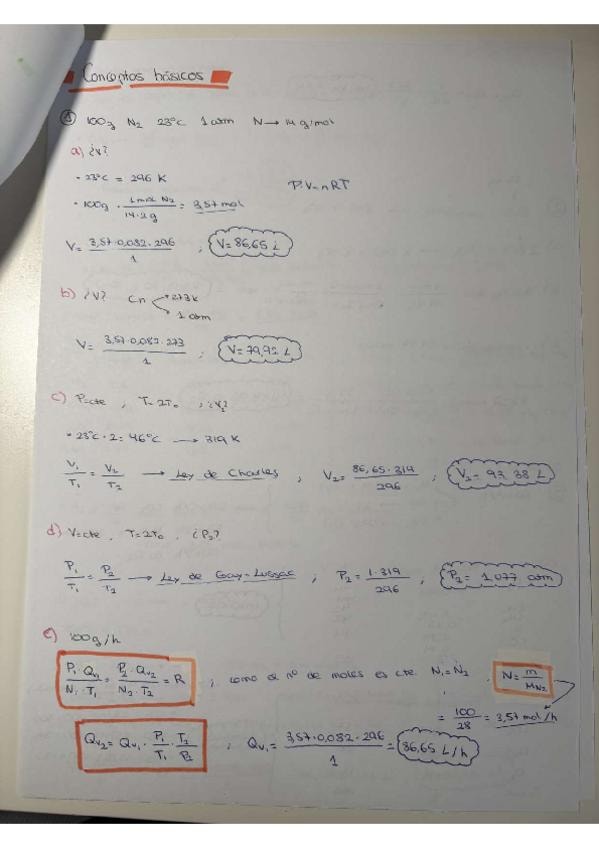 Conceptos básicos
① 100g N2 23°C 1 atm N → 14 g/mol
a) ¿V?
• 23°C = 296 K
P·V=nRT
• 100g · 1 mol N2 / 14·2 g = 3,57 mol
V= 3,57·0,082·296 / 1 ; V= 86,65 L
b) ¿V? Cn → 273 K
→ 1 atm
V= 3,57·0,082·273 / 1 ; V= 79,92 L
c) P=cte , T= 2T0 , ¿V2?
• 23°C · 2 = 46°C → 319 K
V1/T1 = V2/T2 → Ley de Charles ; V2= 86,65·319 / 296 ; V2= 93,38 L
d) V=cte , T=2T0 , ¿P2?
P1/T1 = P2/T2 → Ley de Gay-Lussac ; P2= 1·319 / 296 , P2= 1,077 atm
e) 100g/h
P1·Qv1 / N1·T1 = P2·Qv2 / N2·T2 = R ; como el nº de moles es cte N1=N2 , N= m / MN2
= 100/28 = 3,57 mol/h
Qv2 = Qv1 · P1/T1 · T2/P2 ; Qv1 = 3,57·0,082·296 / 1 = 86,65 L/h